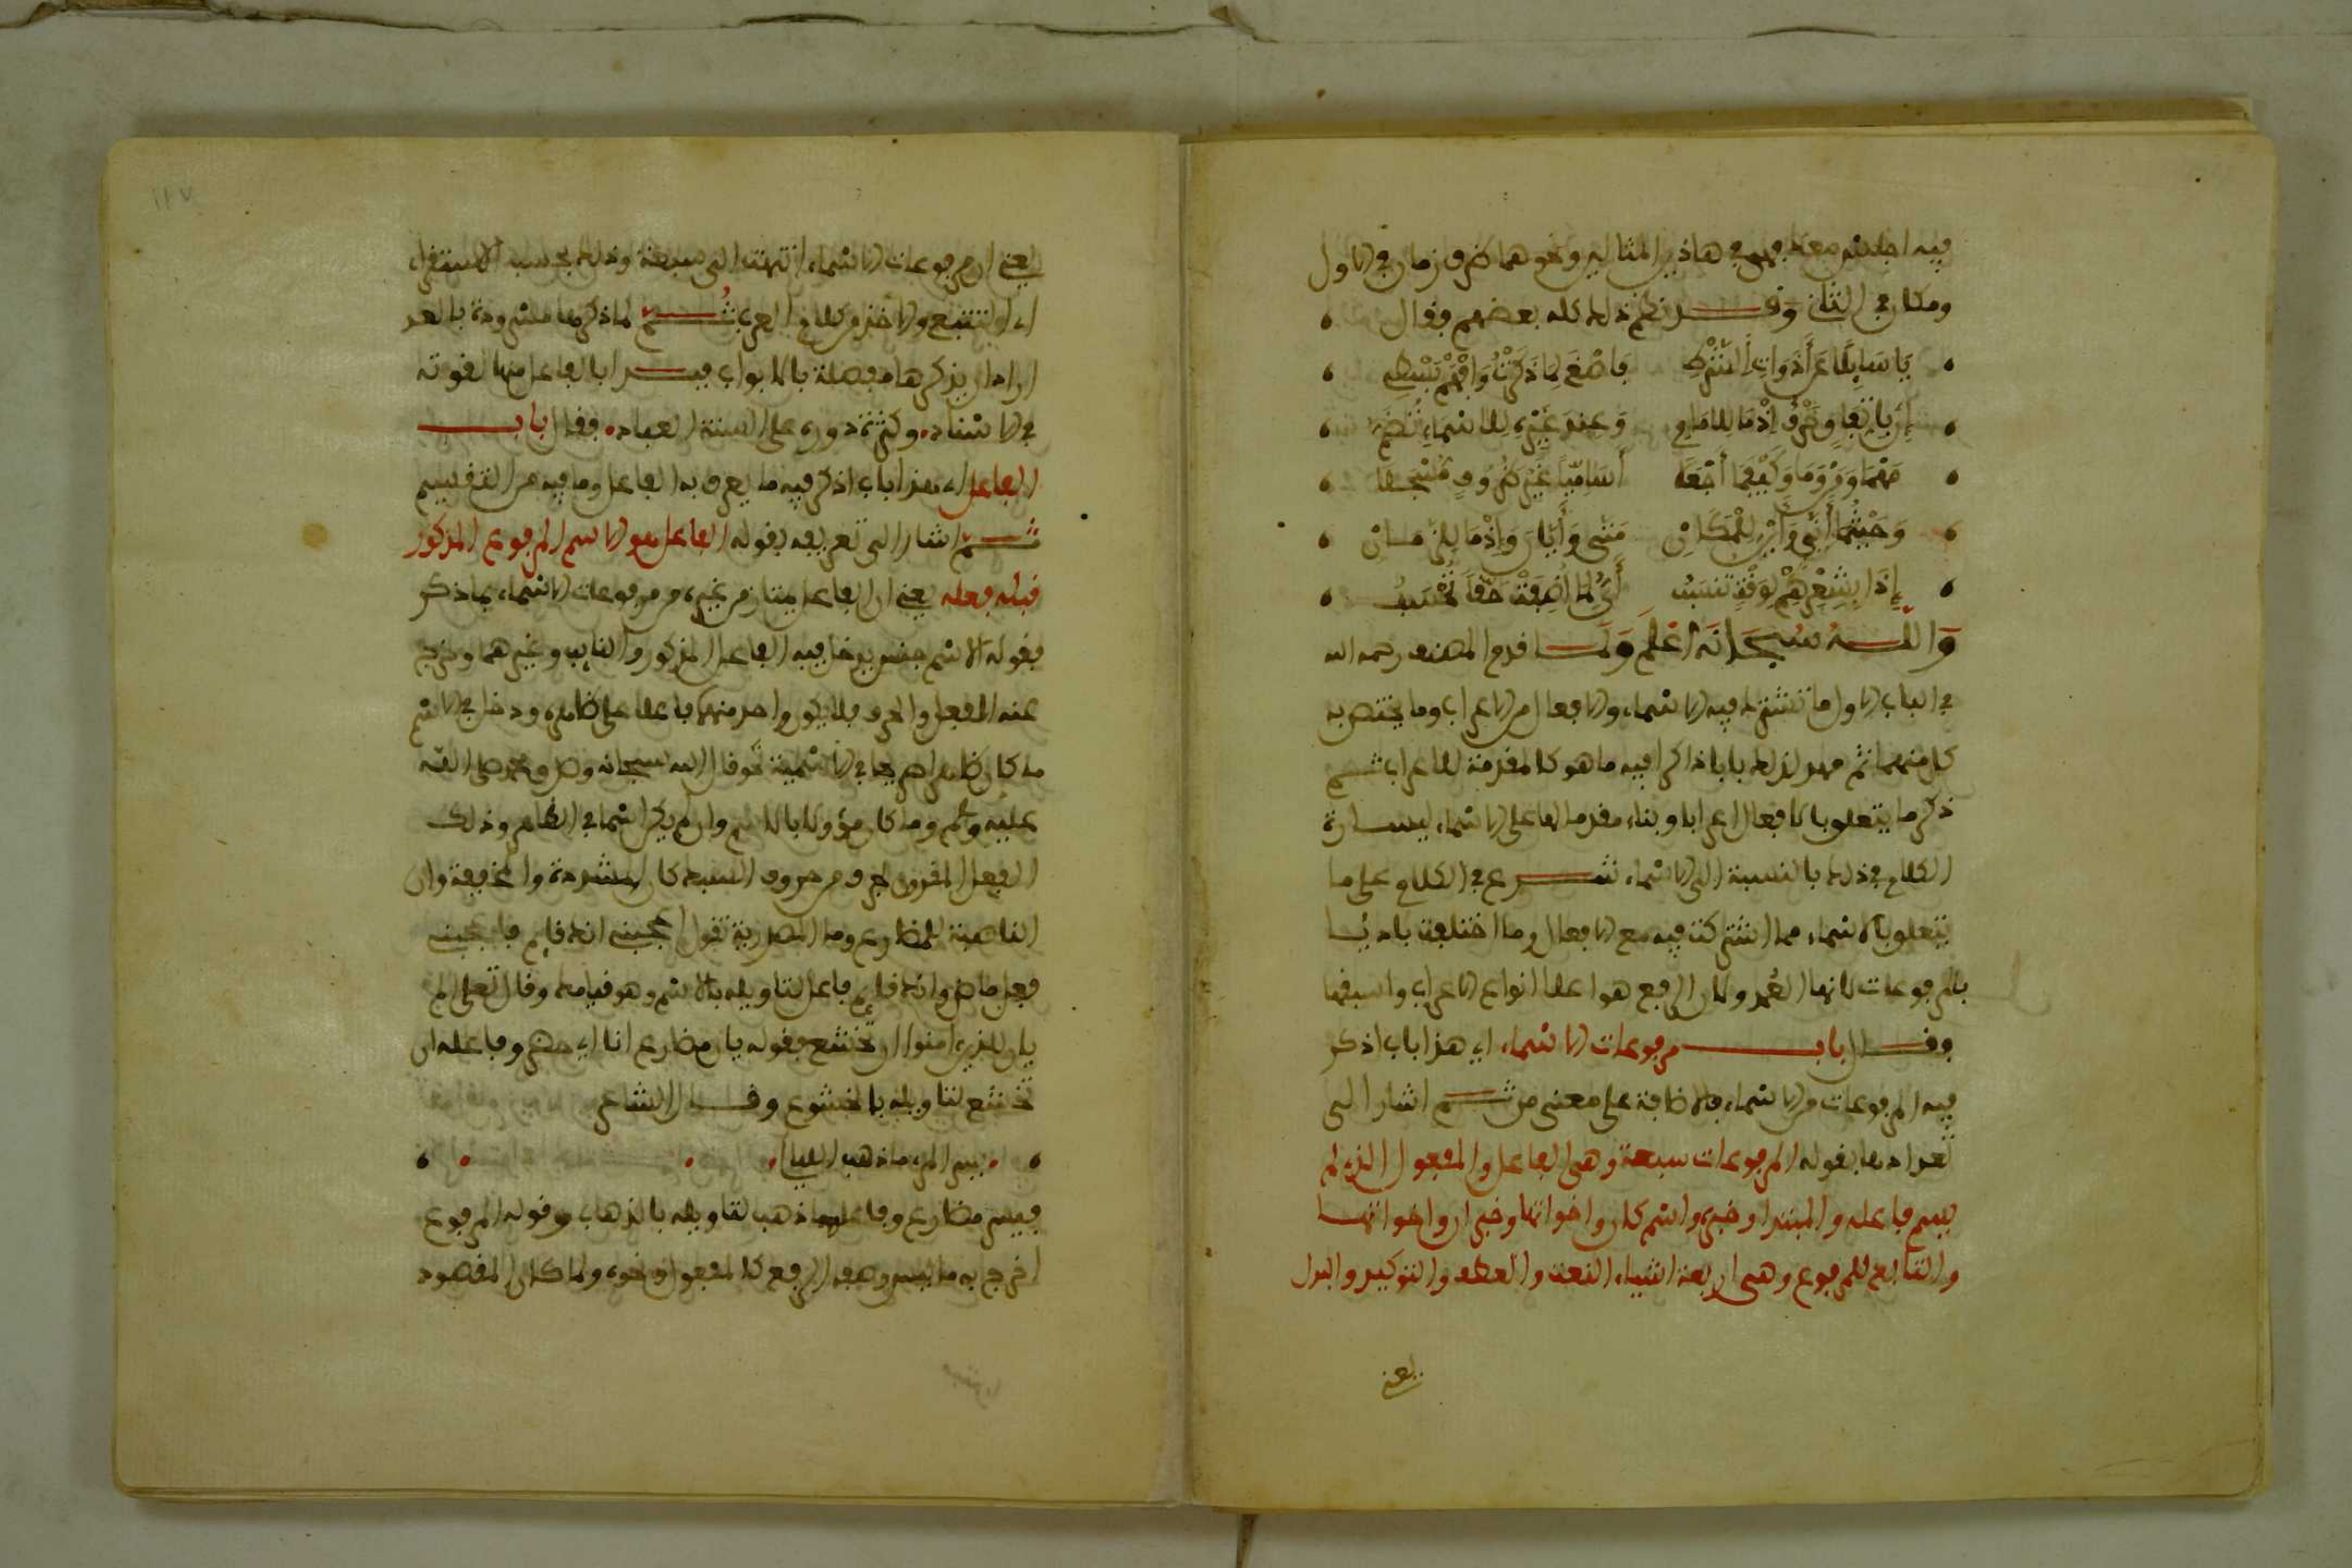 فيه اجلس معك فهي في هاذين المثالين ونحوهما ظرف زمان في الاول
ومكان في الثاني وقد نظم ذلك كله بعضهم فقال
يا سايلا عن أدوات الشرط فاصغ لما ذكرته وافهم بسط
إن باتفاق حرف إذما للامام وعند غيره للاسماء تضم
مهما ومن وما وكيفما اجعلا أساميا غير ظروف
وحيثما أنى وأين للمكان متى وأيان وإذما للزمان
إذا بشعرهم لوقت تنسب أي لما أضيفت حقا تحسب
والله سبحانه اعلم ولما قدم المصنف رحمه الله
في الباب الاول ما تشترك فيه الاسماء والافعال من الاعراب وما يختص به
كل منهما ثم مهد لذلك بابا ذاكرا فيه ما هو كالمقدمة للاعراب ثم
ذكر ما يتعلق بالافعال اعرابا وبناء مقدما لها على الاسماء ليسارة
الكلام في ذلك بالنسبة الى الاسماء شرع في الكلام على ما
يتعلق بالاسماء مما اشتركت فيه مع الافعال وما اختلفت باديا
بالمرفوعات لانها العمد ولان الرفع هو اعلا انواع الاعراب واسبقها
وقال باب مرفوعات الاسماء اي هذا باب اذكر
فيه المرفوعات من الاسماء فالاضافة على معنى من ثم اشار الى
تعدادها بقوله المرفوعات سبعة وهي الفاعل والمفعول الذي لم
يسم فاعله والمبتدا وخبره واسم كان واخواتها وخبر ان واخواتها
والتابع للمرفوع وهي اربعة اشياء النعت والعطف والتوكيد والبدل
يعني
يعني ان مرفوعات الاسماء انتهت الى سبعة وذلك بحسب الاستقراء
اي والتتبع والاخذ من كلام العرب ثم لما ذكرها مسرودة بالعد
اراد ان يذكرها مفصلة بالابواب فبدا بالفاعل منها لقوته
في الاسناد وكثرة دوره على السنة العباد فقال باب
الفاعل اي هذا باب اذكر فيه ما يعرف به الفاعل وما فيه من التقسيم
ثم اشار الى تعريفه بقوله الفاعل هو الاسم المرفوع المذكور
قبله فعله يعني ان الفاعل يمتاز من غيره من مرفوعات الاسماء بما ذكر
فقوله الاسم جنس يدخل فيه الفاعل المذكور والنايب وغيرهما وخرج
عنه الفعل والحرف فلا يكون واحد منهما فاعلا على ظاهره ودخل في الاسم
ما كان ظاهرا صريحا في الاسمية نحو قال الله سبحانه وصلى الله
عليه وسلم وما كان مؤولا بالاسم وان لم يكن اسما في الظاهر وذلك
الفعل المقرون بحرف من حروف السبك كان المشددة والمخففة وان
الناصبة للمضارع وما المصدرية تقول اعجبني انك قايم فاعجبني
فعل ماض وانك قايم فاعل لتاويله بالاسم وهو قيامك وقال تعلى الم
يان للذين امنوا ان تخشع فقوله يان مضارع انا اي حضر وفاعله ان
تخشع لتاويله بالخشوع وقال الشاعر
يسر المرء ما ذهب الليالي
فيسر مضارع وفاعله ما ذهب لتاويله بالذهاب وقوله المرفوع
اخرج به ما ليس وصفه الرفع كالمفعول ونحوه ولما كان المقصود